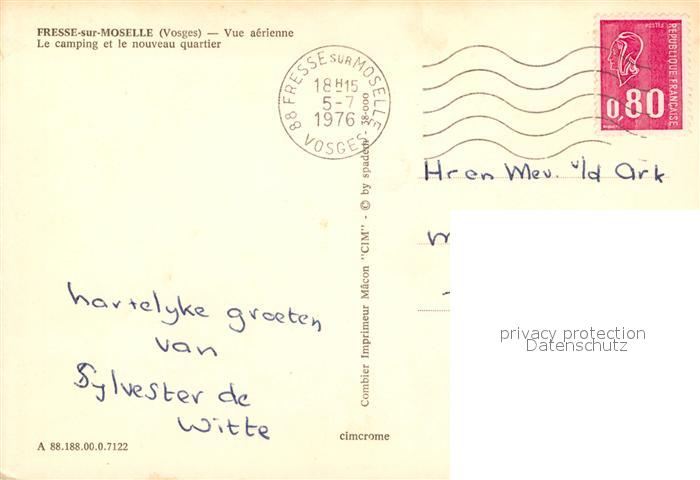 FRESSE-sur-MOSELLE (Vosges) — Vue aérienne
Le camping et le nouveau quartier
88 FRESSE SUR MOSELLE
18H15
5-7
1976
VOSGES
POSTES
REPUBLIQUE FRANÇAISE
0,80
Hr en Mev. v/d Ark
hartelyke groeten
van
Sylvester de
Witte
Combier Imprimeur Mâcon "CIM" - © by spadem - 38-000
privacy protection
Datenschutz
A 88.188.00.0.7122
cimcrome